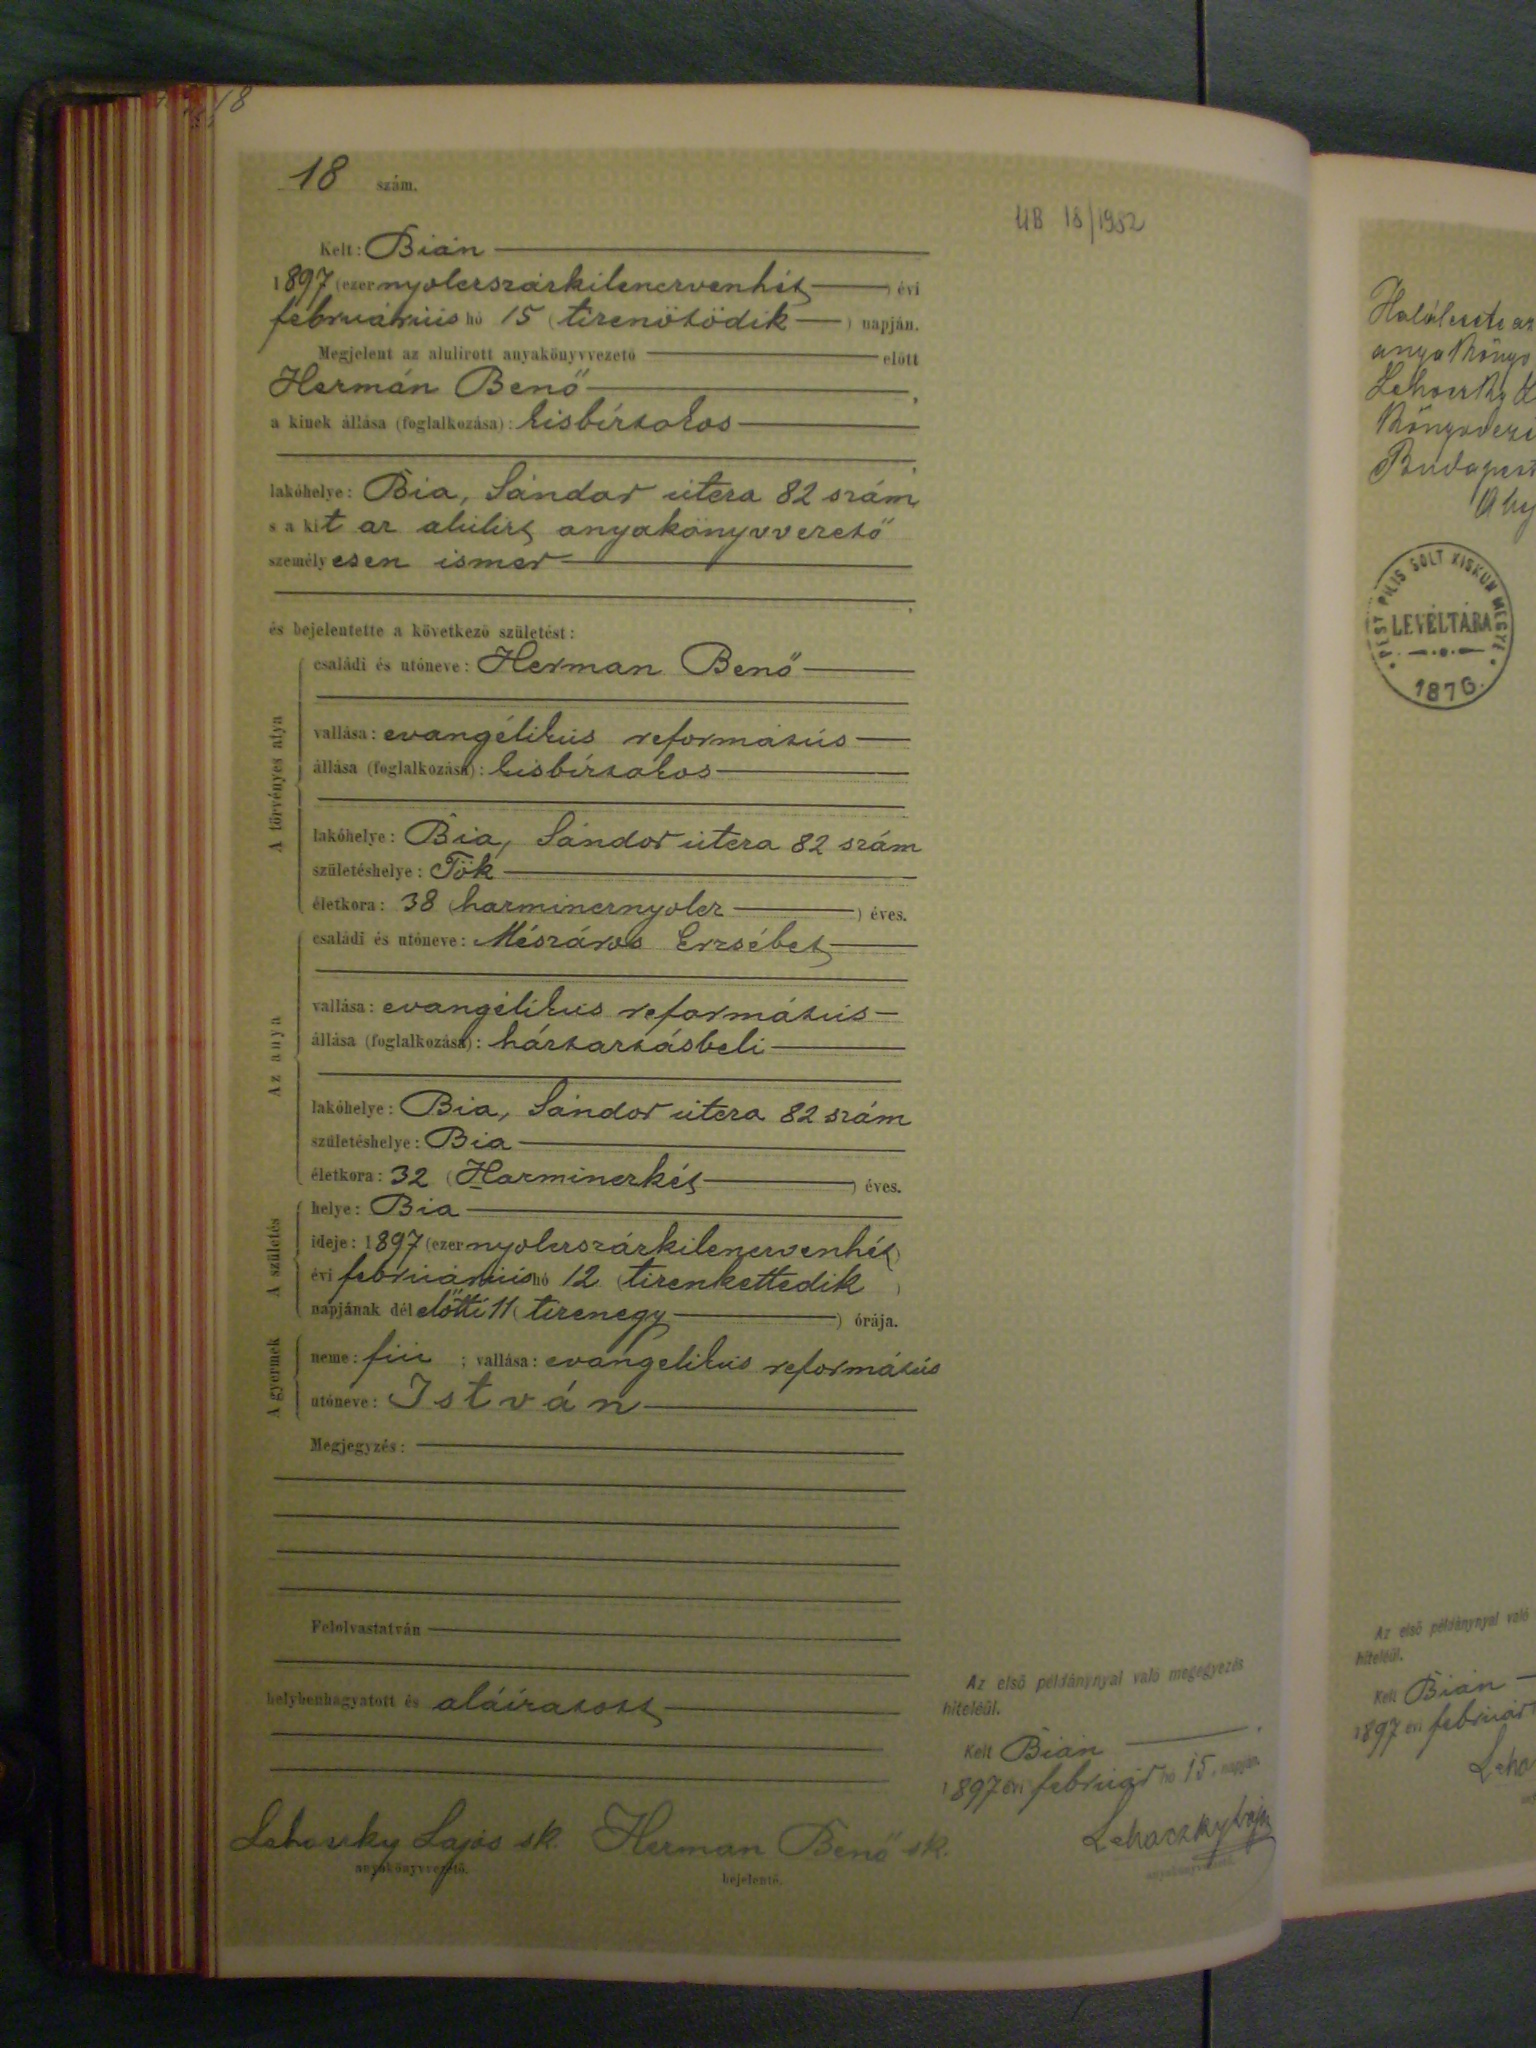 18
18 szám.
UB 18/1982
Kelt: Bián
1897 (ezernyolcszázkilencvenhét) évi
februáriús hó 15 (tizenötödik) napján.
Megjelent az alulirott anyakönyvvezető előtt
Hermán Benő,
a kinek állása (foglalkozása): kisbírtokos
lakóhelye: Bia, Sándor útcza 82 szám
s a kit az alúlírt anyakönyvvezető
személyesen ismer
és bejelentette a következő születést:
A törvényes atya
családi és utóneve: Herman Benő
vallása: evangélikús reformátús
állása (foglalkozása): kisbírtokos
lakóhelye: Bia, Sándor útcza 82 szám
születéshelye: Tök
életkora: 38 (harmincznyolcz) éves.
Az anya
családi és utóneve: Mészáros Erzsébet
vallása: evangélikús reformátús
állása (foglalkozása): háztartásbeli
lakóhelye: Bia, Sándor útcza 82 szám
születéshelye: Bia
életkora: 32 (Harminczkét) éves.
A születés
helye: Bia
ideje: 1897 (ezernyolczszázkilenczvenhét)
évi februáriús hó 12 (tizenkettedik)
napjának délelőtti 11 (tizenegy) órája.
A gyermek
neme: fiú; vallása: evangelikús reformátús
utóneve: István
Megjegyzés:
Felolvastatván
helybenhagyatott és aláíratott
Lehoczky Lajos sk. Herman Benő sk.
anyakönyvvezető. bejelentő.
Az első példánynyal való megegyezés
hiteléül.
Kelt Bián
1897 évi február hó 15. napján.
Lehoczky Lajos
anyakönyvvezető.
Halálesete az
Budapest
PEST PILIS SOLT KISKUN MEGYE
LEVÉLTÁRA
1876.
Az első példánynyal való
hiteléül.
Kelt Bián
1897 évi február
Leho